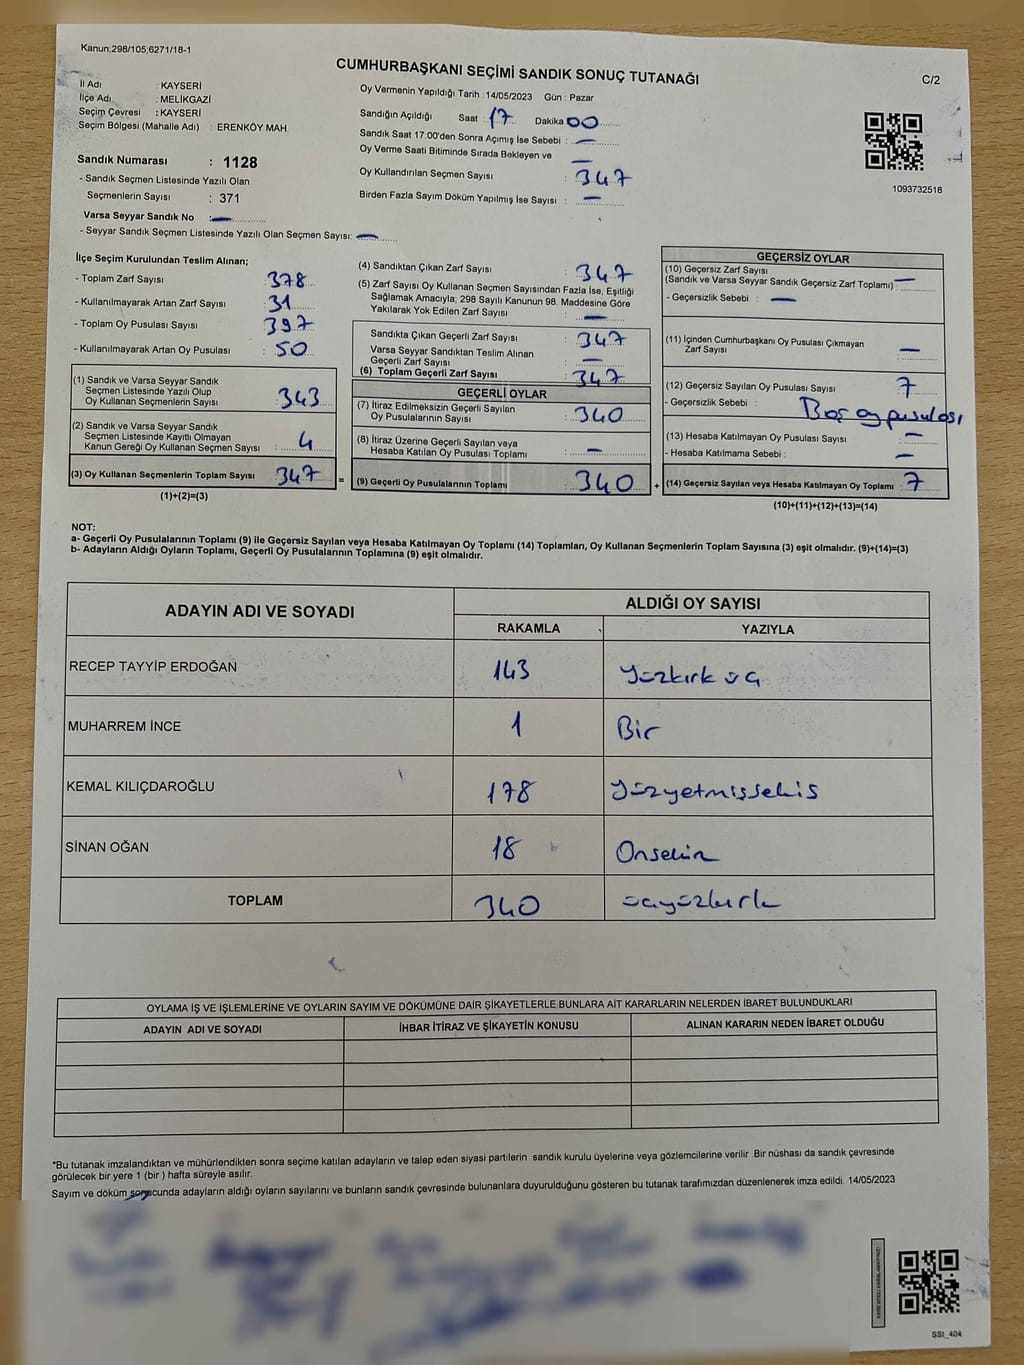 Kanun;298/105;6271/18-1
CUMHURBAŞKANI SEÇİMİ SANDIK SONUÇ TUTANAĞI
C/2
İl Adı : KAYSERİ
İlçe Adı : MELİKGAZİ
Seçim Çevresi : KAYSERİ
Seçim Bölgesi (Mahalle Adı) : ERENKÖY MAH.
Sandık Numarası : 1128
- Sandık Seçmen Listesinde Yazılı Olan
Seçmenlerin Sayısı : 371
Varsa Seyyar Sandık No : —
- Seyyar Sandık Seçmen Listesinde Yazılı Olan Seçmen Sayısı: —
Oy Vermenin Yapıldığı Tarih : 14/05/2023 Gün : Pazar
Sandığın Açıldığı Saat : 17 Dakika 00
Sandık Saat 17:00'den Sonra Açımış İse Sebebi : —
Oy Verme Saati Bitiminde Sırada Bekleyen ve —
Oy Kullandırılan Seçmen Sayısı : 347
Birden Fazla Sayım Döküm Yapılmış İse Sayısı : —
1093732518
İlçe Seçim Kurulundan Teslim Alınan;
- Toplam Zarf Sayısı : 378
- Kullanılmayarak Artan Zarf Sayısı : 31
- Toplam Oy Pusulası Sayısı : 397
- Kullanılmayarak Artan Oy Pusulası : 50
(1) Sandık ve Varsa Seyyar Sandık
Seçmen Listesinde Yazılı Olup
Oy Kullanan Seçmenlerin Sayısı : 343
(2) Sandık ve Varsa Seyyar Sandık
Seçmen Listesinde Kayıtlı Olmayan
Kanun Gereği Oy Kullanan Seçmen Sayısı : 4
(3) Oy Kullanan Seçmenlerin Toplam Sayısı : 347
(1)+(2)=(3)
=
(4) Sandıktan Çıkan Zarf Sayısı : 347
(5) Zarf Sayısı Oy Kullanan Seçmen Sayısından Fazla İse, Eşitliği
Sağlamak Amacıyla; 298 Sayılı Kanunun 98. Maddesine Göre
Yakılarak Yok Edilen Zarf Sayısı : —
Sandıkta Çıkan Geçerli Zarf Sayısı : 347
Varsa Seyyar Sandıktan Teslim Alınan
Geçerli Zarf Sayısı : —
(6) Toplam Geçerli Zarf Sayısı : 347
GEÇERLİ OYLAR
(7) İtiraz Edilmeksizin Geçerli Sayılan
Oy Pusulalarının Sayısı : 340
(8) İtiraz Üzerine Geçerli Sayılan veya
Hesaba Katılan Oy Pusulası Toplamı : —
(9) Geçerli Oy Pusulalarının Toplamı : 340
+
GEÇERSİZ OYLAR
(10) Geçersiz Zarf Sayısı
(Sandık ve Varsa Seyyar Sandık Geçersiz Zarf Toplamı) —
- Geçersizlik Sebebi : —
(11) İçinden Cumhurbaşkanı Oy Pusulası Çıkmayan
Zarf Sayısı —
(12) Geçersiz Sayılan Oy Pusulası Sayısı 7
- Geçersizlik Sebebi : Boş oy pusulası
(13) Hesaba Katılmayan Oy Pusulası Sayısı —
- Hesaba Katılmama Sebebi : —
(14) Geçersiz Sayılan veya Hesaba Katılmayan Oy Toplamı 7
(10)+(11)+(12)+(13)=(14)
NOT:
a- Geçerli Oy Pusulalarının Toplamı (9) ile Geçersiz Sayılan veya Hesaba Katılmayan Oy Toplamı (14) Toplamları, Oy Kullanan Seçmenlerin Toplam Sayısına (3) eşit olmalıdır. (9)+(14)=(3)
b- Adayların Aldığı Oyların Toplamı, Geçerli Oy Pusulalarının Toplamına (9) eşit olmalıdır.
ADAYIN ADI VE SOYADI
ALDIĞI OY SAYISI
RAKAMLA YAZIYLA
RECEP TAYYİP ERDOĞAN 143 Yüzkırk üç
MUHARREM İNCE 1 Bir
KEMAL KILIÇDAROĞLU 178 Yüzyetmişsekis
SİNAN OĞAN 18 Onsekiz
TOPLAM 340 üçyüzkırk
OYLAMA İŞ VE İŞLEMLERİNE VE OYLARIN SAYIM VE DÖKÜMÜNE DAİR ŞİKAYETLERLE BUNLARA AİT KARARLARIN NELERDEN İBARET BULUNDUKLARI
ADAYIN ADI VE SOYADI İHBAR İTİRAZ VE ŞİKAYETİN KONUSU ALINAN KARARIN NEDEN İBARET OLDUĞU
*Bu tutanak imzalandıktan ve mühürlendikten sonra seçime katılan adayların ve talep eden siyasi partilerin sandık kurulu üyelerine veya gözlemcilerine verilir .Bir nüshası da sandık çevresinde
görülecek bir yere 1 (bir ) hafta süreyle asılır.
Sayım ve döküm sonucunda adayların aldığı oyların sayılarını ve bunların sandık çevresinde bulunanlara duyurulduğunu gösteren bu tutanak tarafımızdan düzenlenerek imza edildi. 14/05/2023
SSI_404